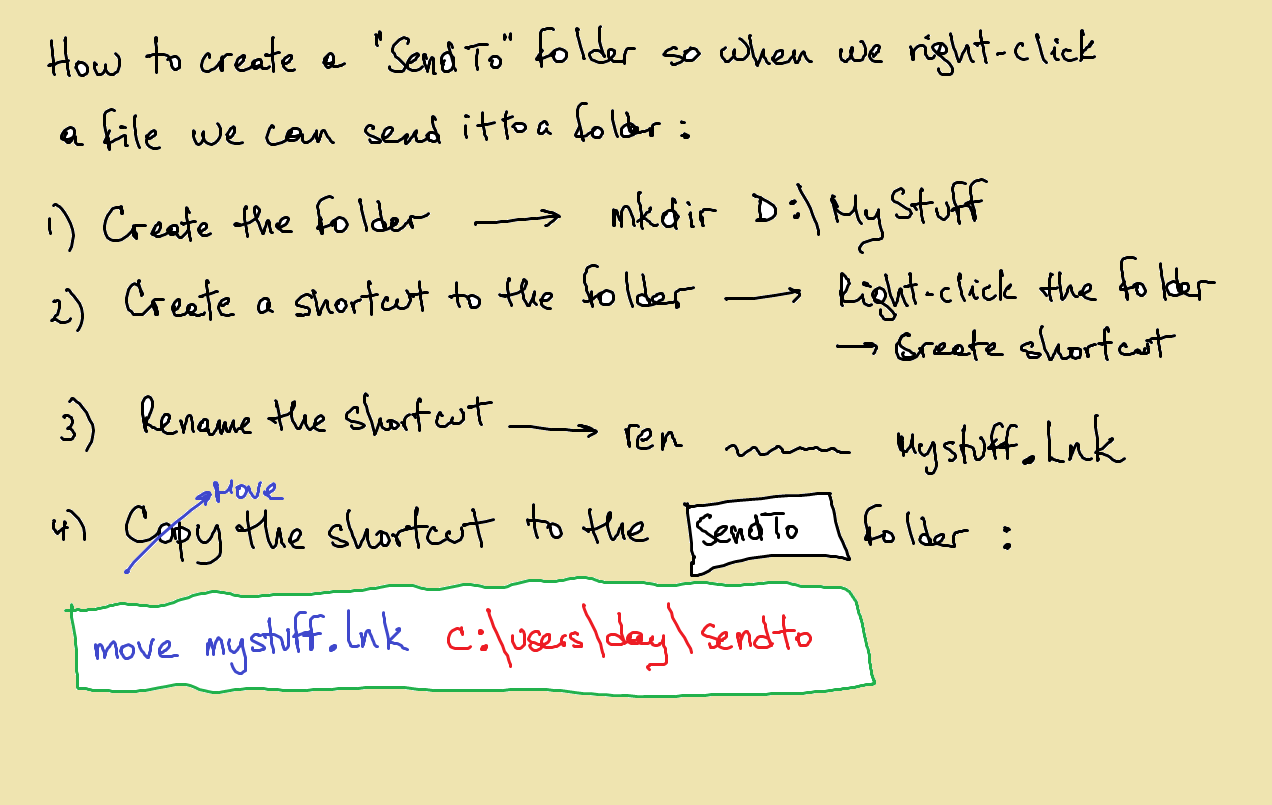 How to create a "SendTo" folder so when we right-click
a file we can send it to a folder :
1) Create the folder → mkdir D:\MyStuff
2) Create a shortcut to the folder → Right-click the folder
→ Create shortcut
3) Rename the shortcut → ren ~~~~ Mystuff.lnk
Move
4) Copy the shortcut to the SendTo folder :
move mystuff.lnk c:\users\day\sendto